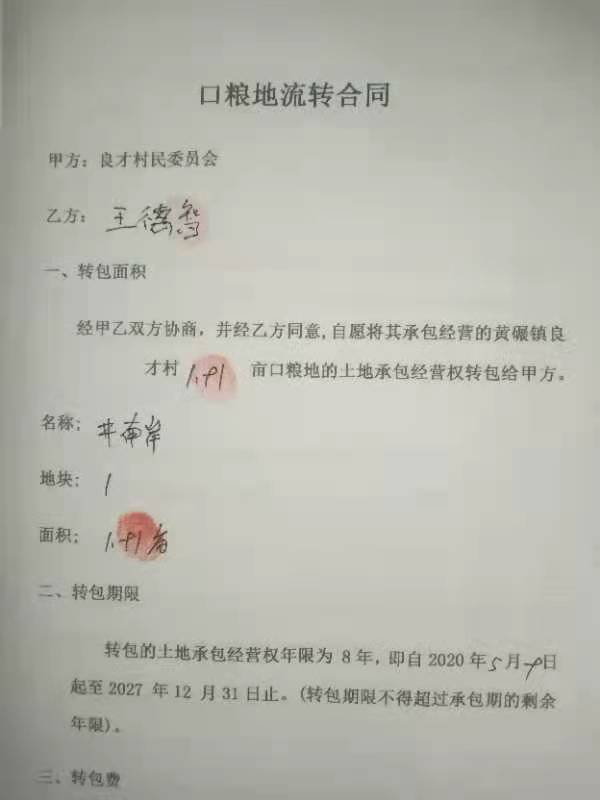 口粮地流转合同
甲方：良才村民委员会
乙方：王德智
一、转包面积
经甲乙双方协商，并经乙方同意,自愿将其承包经营的黄碾镇良
才村 亩口粮地的土地承包经营权转包给甲方。
名称; 井南岸
地块; 1
面积;
二、转包期限
转包的土地承包经营权年限为 8 年，即自 2020 年5月 日
起至 2027 年 12 月 31 日止。(转包期限不得超过承包期的剩余
年限)。
三、转包费